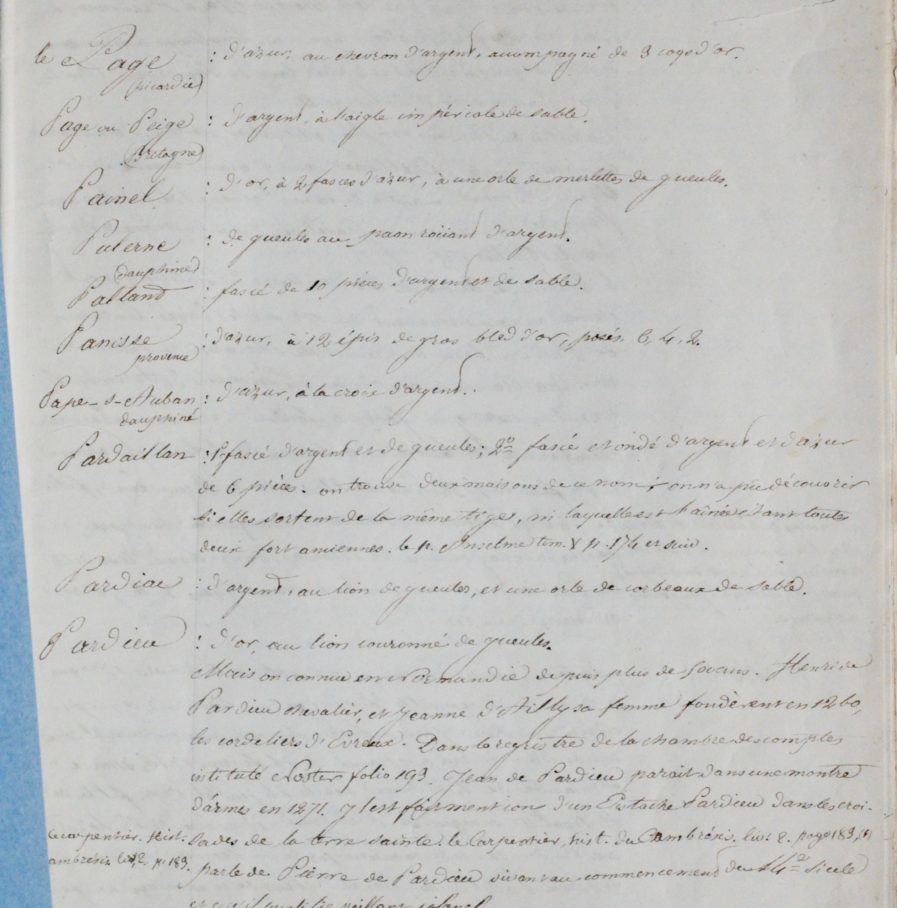 le Page : d'azur, au chevron d'argent, accompagné de 3 coqs d'or.
(picardie)
Page ou Peige : d'argent, à l'aigle impériale de sable.
(Bretagne)
Painel : d'or, à 2 fasces d'azur, à une orle de merlettes de gueules.
Palerne : de gueules au paon roüant d'argent.
(dauphiné)
Palland : fascé de 10 pièces d'argent et de sable.
Panisse : d'azur, à 12 épis de gros bled d'or, posés 6, 4, 2.
provence
Pape - St Auban : d'azur, à la croix d'argent.
dauphiné
Pardaillan : 1° fascé d'argent et de gueules; 2° fascé et ondé d'argent et d'azur
de 6 pièces. on trouve deux maisons de ce nom; on n'a pu découvrir
si elles sortent de la même tiges, ni laquelle est l'aînée étant toutes
deux fort anciennes. le p. Anselme tom. V p. 174 et suiv.
Pardiac : d'argent, au lion de gueules, et une orle de corbeaux de sable.
Pardieu : d'or, au lion couronné de gueules.
Maison connue en Normandie depuis plus de ans. Henri de
Pardieu chevalier, et Jeanne d'Ailly sa femme fondèrent en 1260,
les cordeliers d'Evreux. Dans le registre de la chambre des comptes
intitulé Noster folio 193. Jean de Pardieu parait dans une montre
d'armes en 1271. Il est fait mention d'un Eustache Pardieu dans les croi-
sades de la terre sainte. le Carpentier, hist. du Cambrésis. liv. 2. page 183, (1)
le carpentier. Hist.
ambrésis liv 2. p. 183.
parle de Pierre de Pardieu vivant au commencement du 14e siècle
et qu'il vaillant